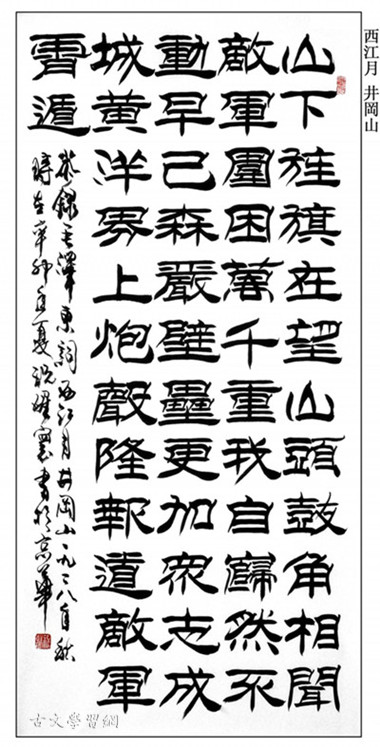 西江月 井岡山
山下旌旗在望山頭鼓角相聞
敵軍圍困萬千重我自巋然不
動早已森嚴壁壘更加眾志成
城黃洋界上炮聲隆報道敵軍
霄遁
恭錄毛澤東詞西江月井岡山一九二八年秋
時在辛卯年夏書於京華
古文學習網